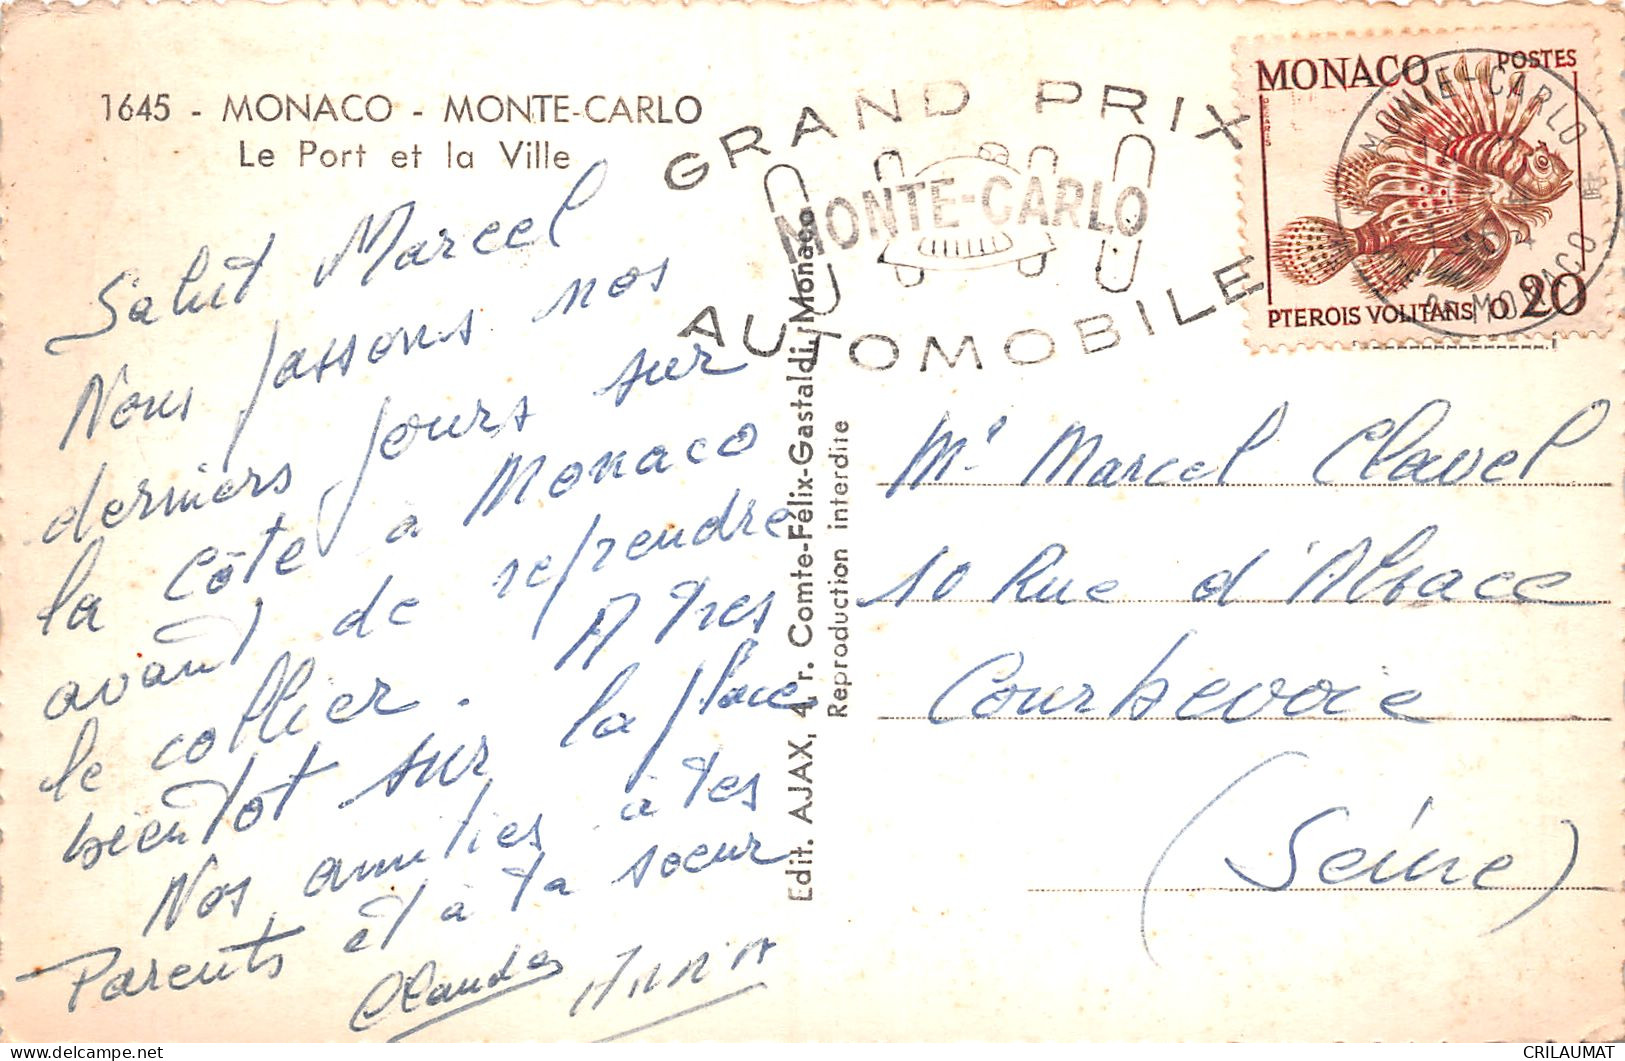 1645 - MONACO - MONTE-CARLO
Le Port et la Ville
Salut Marcel
Nous passons nos
derniers jours sur
la côte à Monaco
avant de reprendre
le collier. A tres
bientot sur la place
Nos amities à tes
Parents et à ta soeur
Claudes
Edit. AJAX, 4, r. Comte-Félix-Gastaldi, Monaco
Reproduction interdite
GRAND PRIX
MONTE-CARLO
AUTOMOBILE
MONACO POSTES
PTEROIS VOLITANS 0.20
MONTE-CARLO
PTE DE MONACO
Mr Marcel Clavel
10 Rue d'Alsace
Courbevoie
(Seine)
CRILAUMAT